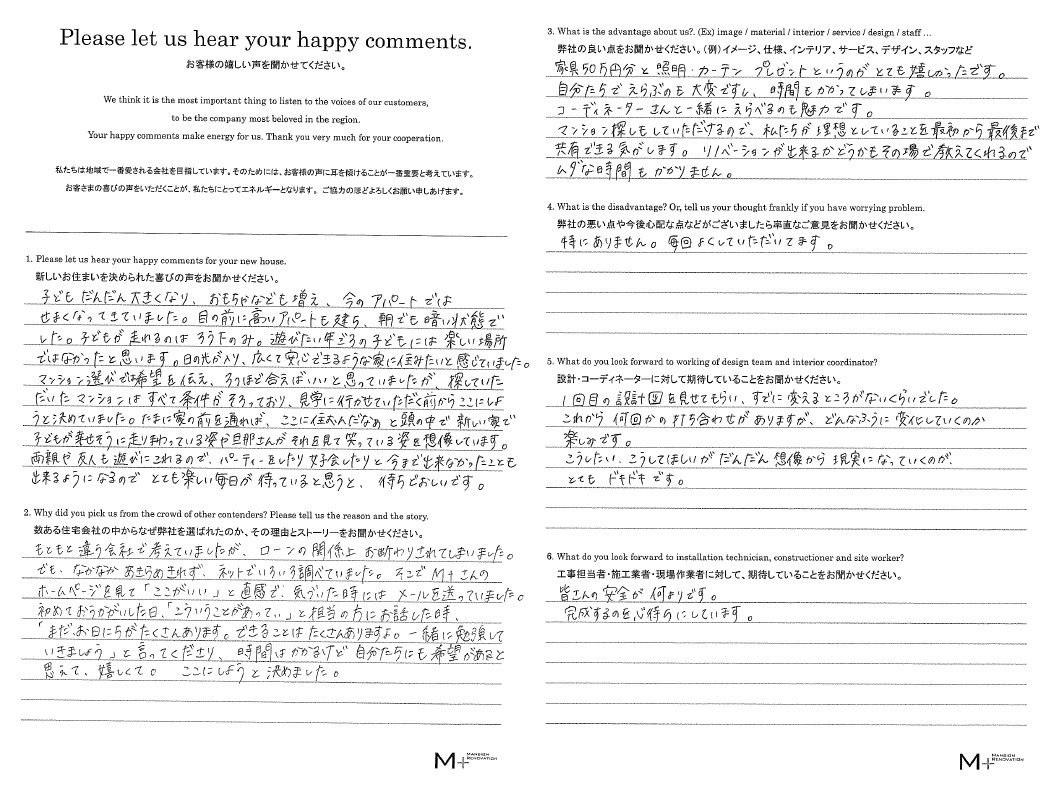 Please let us hear your happy comments.
お客様の嬉しい声を聞かせてください。
We think it is the most important thing to listen to the voices of our customers,
to be the company most beloved in the region.
Your happy comments make energy for us. Thank you very much for your cooperation.
私たちは地域で一番愛される会社を目指しています。そのためには、お客様の声に耳を傾けることが一番重要と考えています。
お客さまの喜びの声をいただくことが、私たちにとってエネルギーとなります。ご協力のほどよろしくお願い申しあげます。
1. Please let us hear your happy comments for your new house.
新しいお住まいを決められた喜びの声をお聞かせください。
子ども だんだん大きくなり、おもちゃなども増え、今の アパート では
せまくなってきていました。目の前に高いアパートも建ち、朝でも暗い状態で
した。子どもが走れるのは ろう下のみ。遊びたい年ごろの子どもには 楽しい場所
ではなかったと思います。日の光が入り、広くて安心できるような家に住みたいと感じていました。
マンション選びで希望を伝え、3つほど合えばいいと思っていましたが、探していた
だいた マンションは すべて 条件が そろっており、見学に行かせていただく前から ここにしよ
うと決めていました。たまに家の前を通れば、ここに住むんだなぁ と頭の中で 新しい家で
子どもが幸せそうに走りまわっている姿や旦那さんが それを見て 笑っている姿を想像しています。
両親や 友人も 遊びにこれるので、パーティーをしたり 女子会したりと 今まで出来なかったことも
出来るようになるので とても楽しい毎日が 待っていると思うと、待ちどおしいです。
2. Why did you pick us from the crowd of other contenders? Please tell us the reason and the story.
数ある住宅会社の中からなぜ弊社を選ばれたのか、その理由とストーリーをお聞かせください。
もともと 違う会社で 考えていましたが、ローンの関係上 お断わりされてしまいました。
でも、なかなか あきらめきれず、ネットでいろいろ調べていました。そこで M+さんの
ホームページを見て「ここがいい」と直感で、気づいた時には メールを送っていました。
初めておうかがいした日、「こういうことがあって。」と担当の方にお話した時、
「まだ、お日にちがたくさんあります。できることは たくさんありますよ。一緒に勉強して
いきましょう」と言ってくださり、時間はかかるけど 自分たちにも希望があると
思えて、嬉しくて。 ここにしようと決めました。
M+ MANSION RENOVATION
3. What is the advantage about us?. (Ex) image / material / interior / service / design / staff ...
弊社の良い点をお聞かせください。（例）イメージ、仕様、インテリア、サービス、デザイン、スタッフなど
家具50万円分と 照明・カーテン プレゼントというのが とても嬉しかったです。
自分たちで えらぶのも 大変ですし、時間もかかってしまいます。
コーディネーターさんと一緒に えらべるのも魅力です。
マンション探しもしていただけるので、私たちが 理想としていることを最初から最後まで
共有できる気がします。リノベーションが出来るかどうかもその場で教えてくれるので
ムダな時間も かかりません。
4. What is the disadvantage? Or, tell us your thought frankly if you have worrying problem.
弊社の悪い点や今後心配な点などがございましたら率直なご意見をお聞かせください。
特にありません。毎回よくしていただいてます。
5. What do you look forward to working of design team and interior coordinator?
設計・コーディネーターに対して期待していることをお聞かせください。
1回目の設計図を見せてもらい、すでに変えるところがないくらいでした。
これから 何回かの 打ち合わせがありますが、どんなふうに 変化していくのか
楽しみです。
こうしたい、こうしてほしいが だんだん 想像から 現実になっていくのが、
とても ドキドキです。
6. What do you look forward to installation technician, constructioner and site worker?
工事担当者・施工業者・現場作業者に対して、期待していることをお聞かせください。
皆さんの安全が 何よりです。
完成するのを心待ちにしています。
M+ MANSION RENOVATION